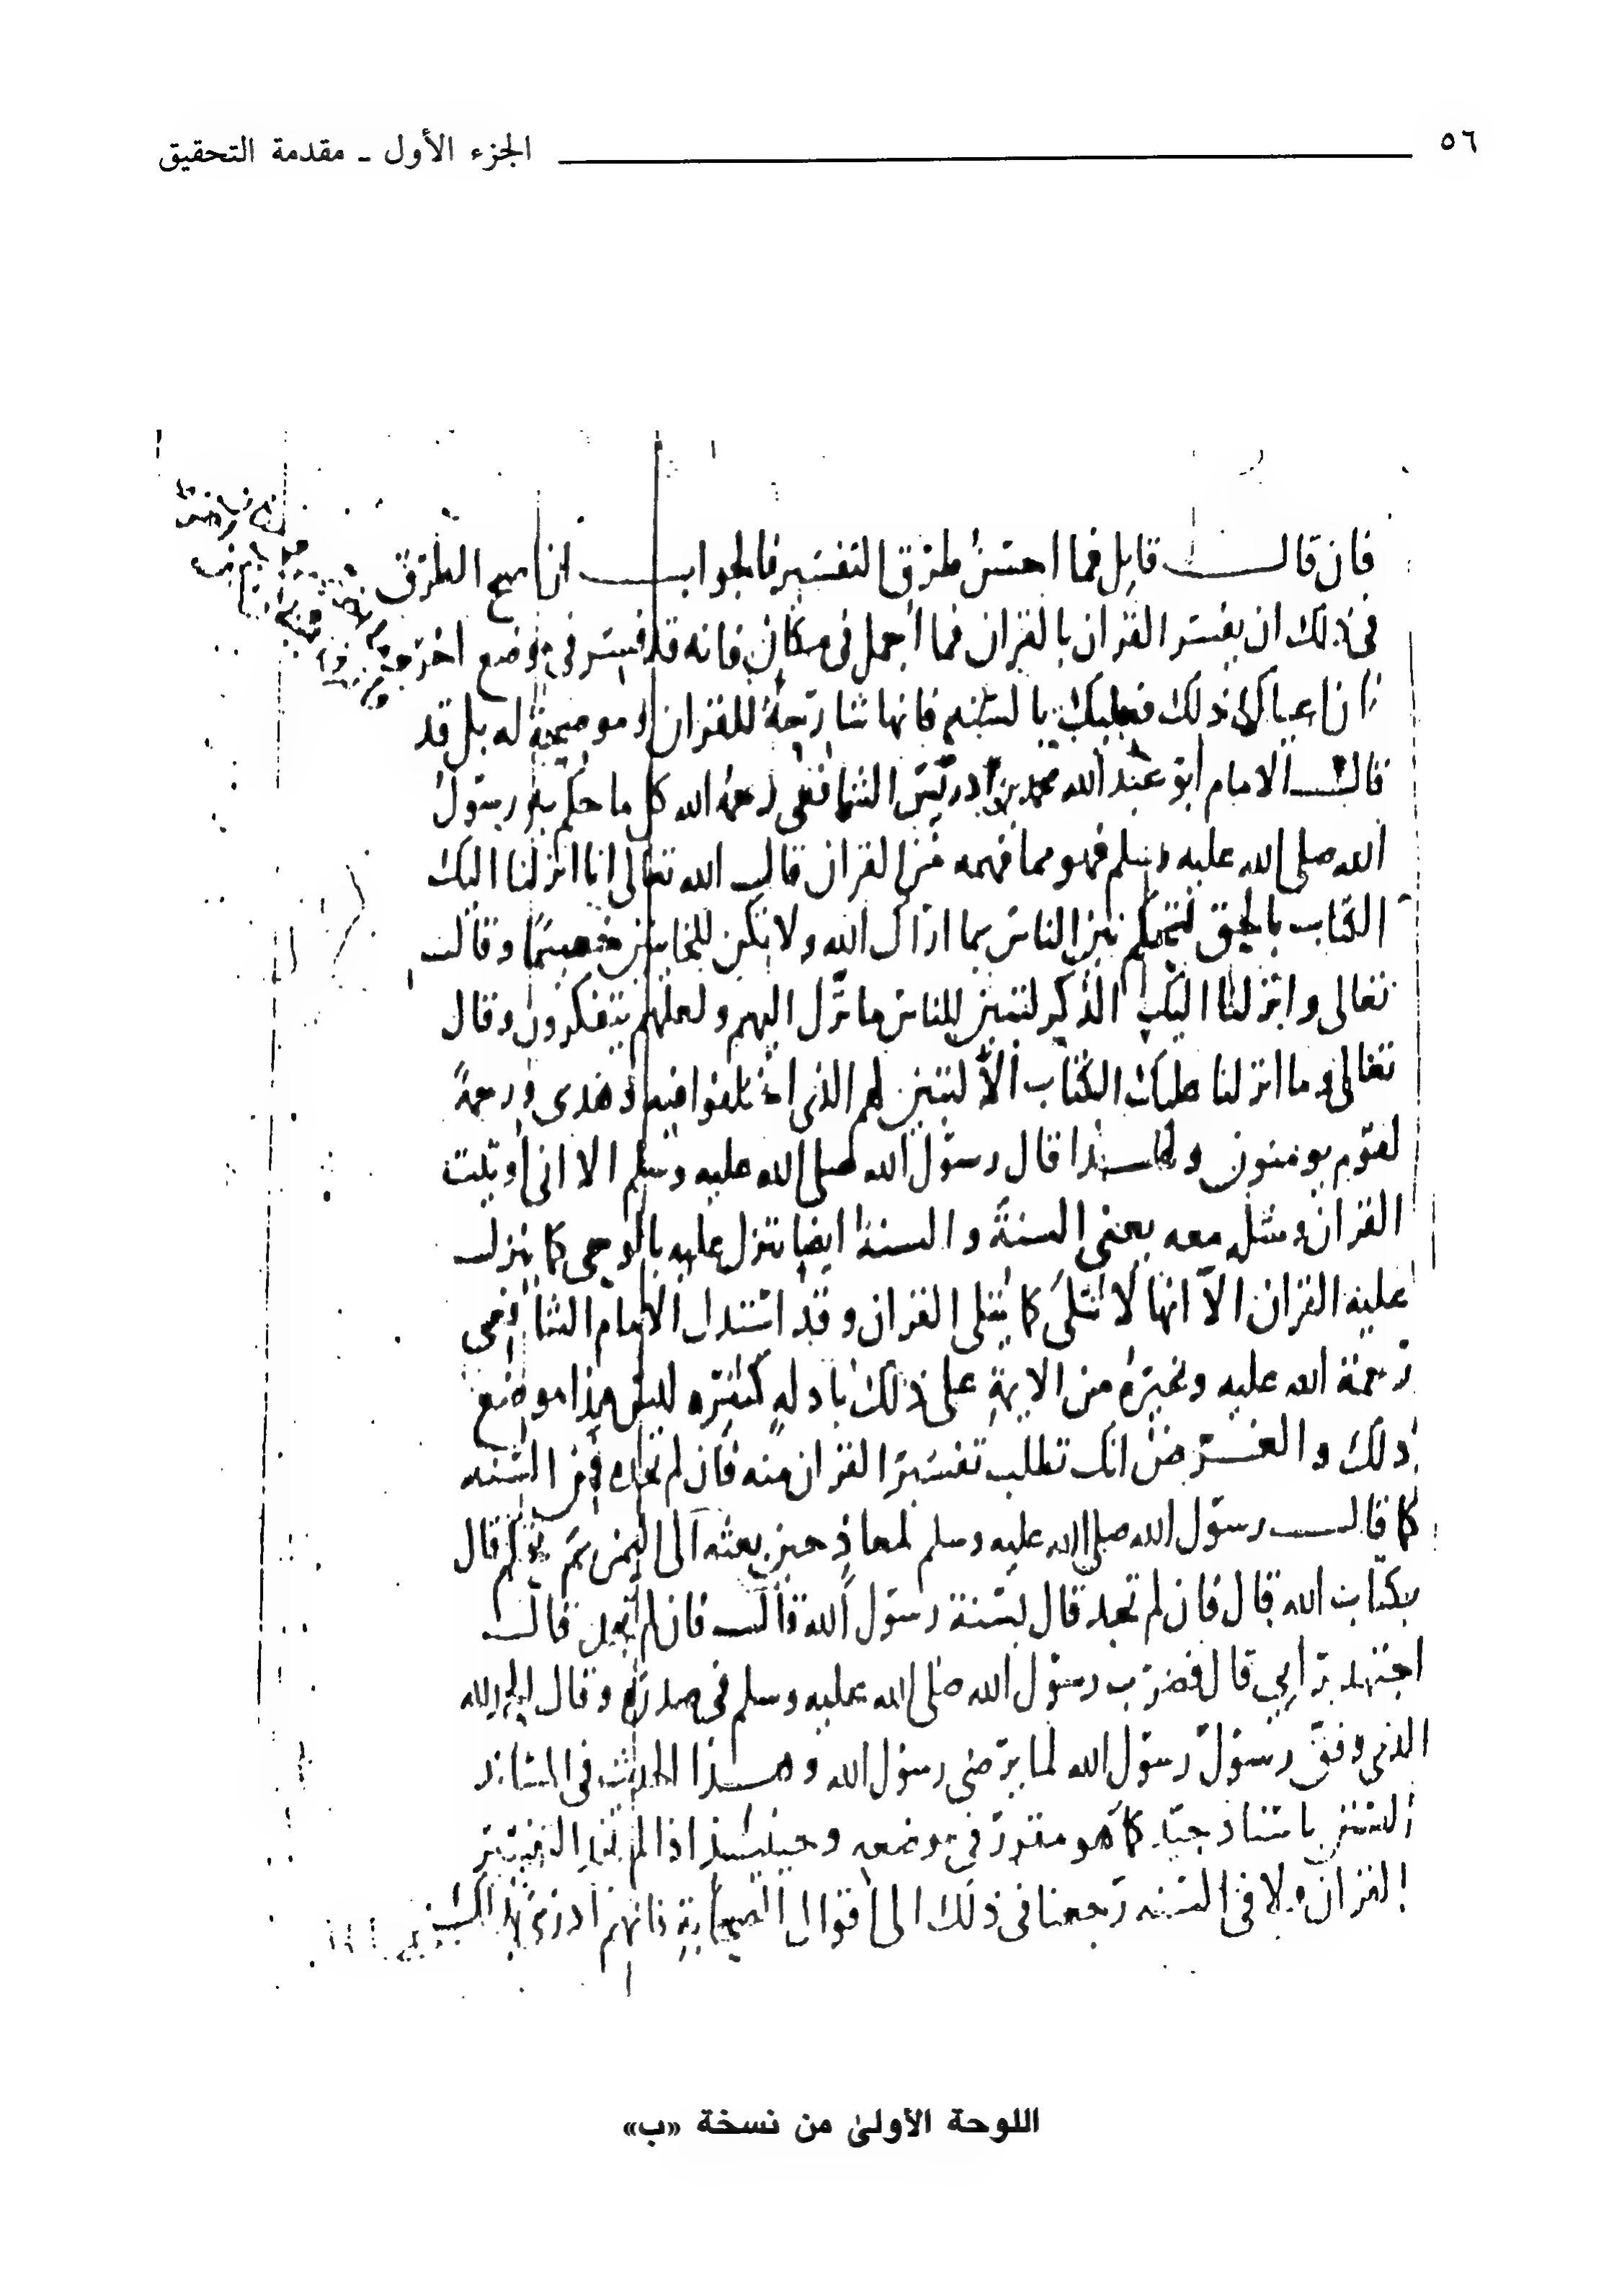 ٥٦
الجزء الأول ـ مقدمة التحقيق
فان قال قايل فما احسن طرق التفسير فالجواب ان اصح الطرق
فى ذلك ان يفسر القران بالقران فما اجمل فى مكان فانه قد فسر فى موضع اخر
ان اعياك ذلك فعليك بالسنه فانها شارحة للقران وموضحة له بل قد
قال الامام ابو عبد الله محمد بن ادريس الشافعى رحمه الله كل ما حكم به رسول
الله صلى الله عليه وسلم فهو مما فهمه من القران قال الله تعالى انا انزلنا اليك
الكتاب بالحق لتحكم بين الناس بما اراك الله ولا تكن للخاينين خصيما وقال
تعالى وانزلنا اليك الذكر لتبين للناس ما نزل اليهم ولعلهم يتفكرون وقال
تعالى وما انزلنا عليك الكتاب الا لتبين لهم الذى اختلفوا فيه وهدى ورحمة
لقوم يومنون ولهذا قال رسول الله صلى الله عليه وسلم الا انى اوتيت
القران ومثله معه يعنى السنة والسنة ايضا تنزل عليه بالوحى كما ينزل
عليه القران الا انها لا تتلى كما يتلى القران وقد استدل الامام الشافعى
رحمة الله عليه وغيره من الايمة على ذلك بادلة كثيره ليس هذا موضع
ذلك والغرض انك تطلب تفسير القران منه فان لم تجده فمن السنه
كما قال رسول الله صلى الله عليه وسلم لمعاذ حين بعثه الى اليمن بم تحكم قال
بكتاب الله قال فان لم تجد قال بسنة رسول الله قال فان لم تجد قال
اجتهد برايي قال فضرب رسول الله صلى الله عليه وسلم فى صدره وقال الحمد لله
الذى وفق رسول رسول الله لما يرضى رسول الله وهذا الحديث فى المساند
السنن باسناد جيد كما هو مقرر فى موضعه وحينئذ اذا لم نجد التفسير
القران ولا فى السنه رجعنا فى ذلك الى اقوال الصحابة فانهم ادرى
اللوحة الأولىٰ من نسخة «ب»